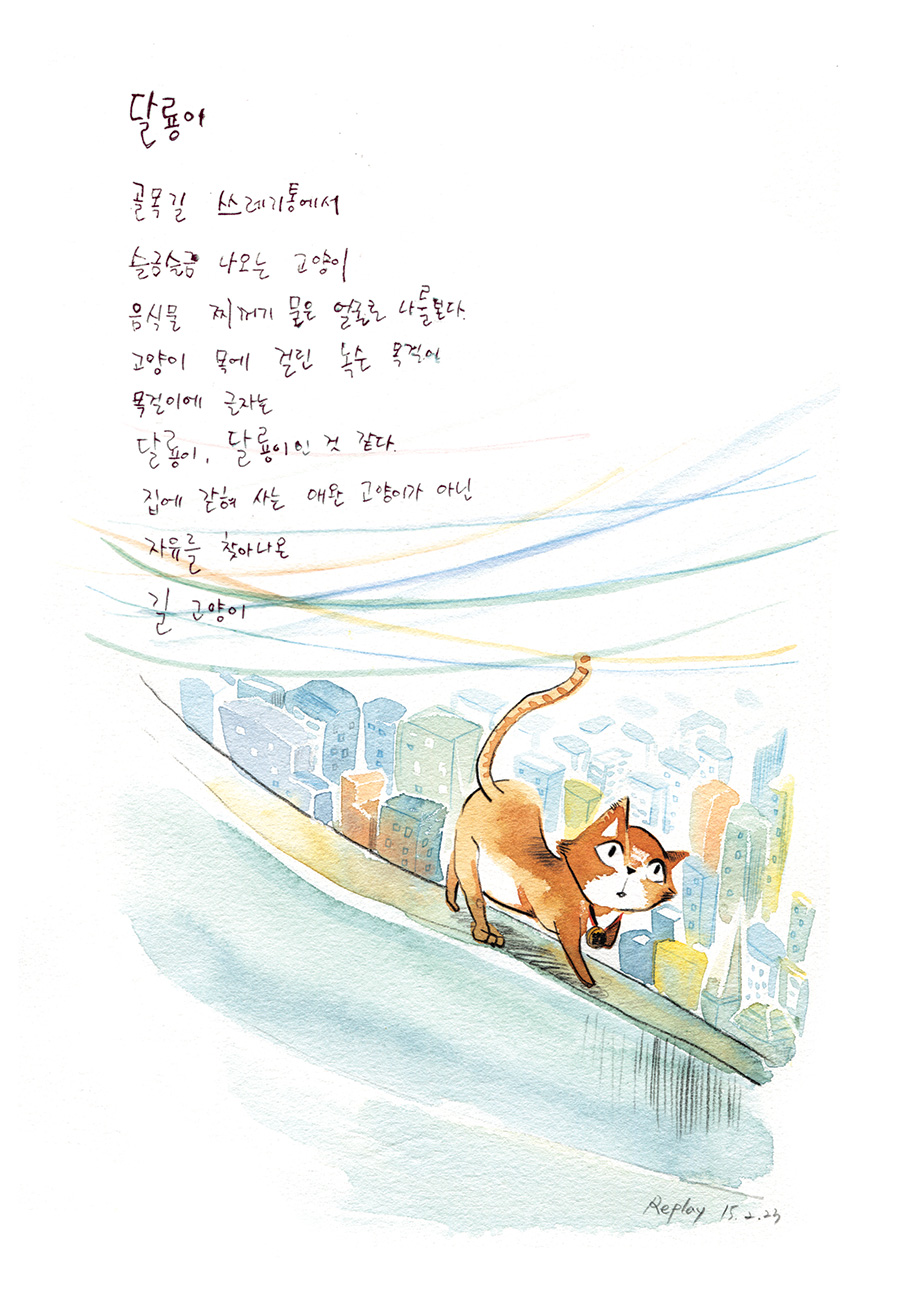 달룡이
골목길 쓰레기통에서
슬금슬금 나오는 고양이
음식물 찌꺼기 묻은 얼굴로 나를 본다.
고양이 목에 걸린 녹슨 목걸이
목걸이에 글자는
달룡이, 달룡이인 것 같다.
집에 갇혀 사는 애완 고양이가 아닌
자유를 찾아나온
길 고양이
Replay 15.2.23